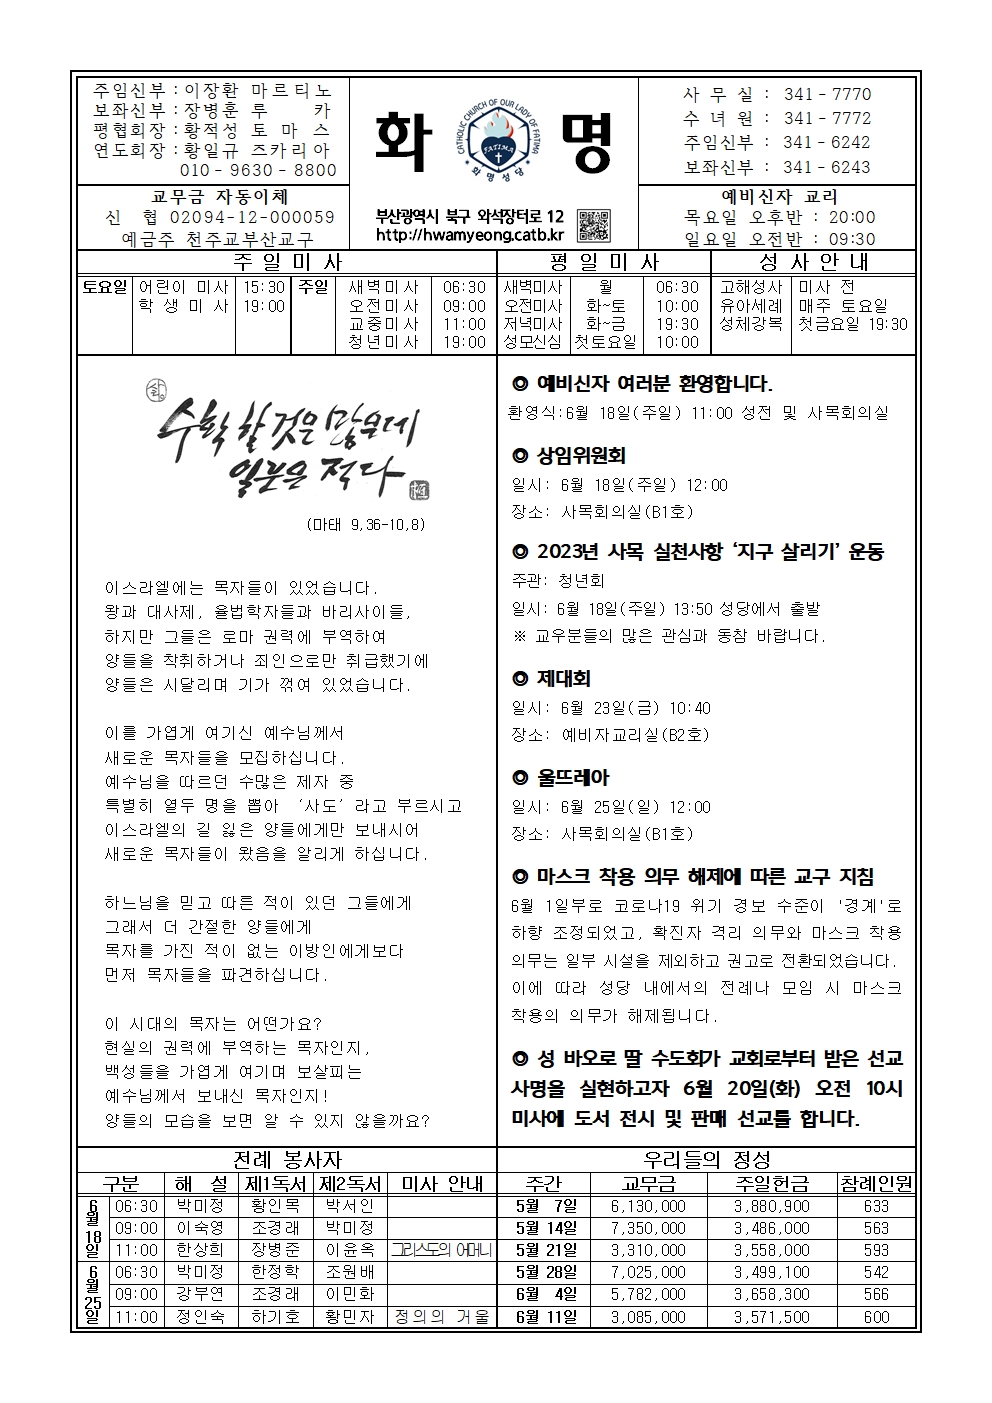 주임신부 : 이장환 마르티노
보좌신부 : 장병훈 루 카
평협회장 : 황적성 토 마 스
연도회장 : 황일규 즈카리아
010 - 9630 - 8800
교무금 자동이체
신 협 02094-12-000059
예금주 천주교부산교구
화 명
CATHOLIC CHURCH OF OUR LADY OF FATIMA
FATIMA
화명성당
부산광역시 북구 와석장터로 12
http://hwamyeong.catb.kr
사 무 실 : 341 - 7770
수 녀 원 : 341 - 7772
주임신부 : 341 - 6242
보좌신부 : 341 - 6243
예비신자 교리
목요일 오후반 : 20:00
일요일 오전반 : 09:30
주 일 미 사
토요일 어린이 미사 15:30 주일 새벽미사 06:30
학 생 미 사 19:00 오전미사 09:00
교중미사 11:00
청년미사 19:00
평 일 미 사
새벽미사 월 06:30
오전미사 화~토 10:00
저녁미사 화~금 19:30
성모신심 첫토요일 10:00
성 사 안 내
고해성사 미사 전
유아세례 매주 토요일
성체강복 첫금요일 19:30
수확할 것은 많은데
일꾼은 적다
(마태 9,36-10,8)
이스라엘에는 목자들이 있었습니다.
왕과 대사제, 율법학자들과 바리사이들,
하지만 그들은 로마 권력에 부역하여
양들을 착취하거나 죄인으로만 취급했기에
양들은 시달리며 기가 꺾여 있었습니다.
이를 가엽게 여기신 예수님께서
새로운 목자들을 모집하십니다.
예수님을 따르던 수많은 제자 중
특별히 열두 명을 뽑아 ‘사도’라고 부르시고
이스라엘의 길 잃은 양들에게만 보내시어
새로운 목자들이 왔음을 알리게 하십니다.
하느님을 믿고 따른 적이 있던 그들에게
그래서 더 간절한 양들에게
목자를 가진 적이 없는 이방인에게보다
먼저 목자들을 파견하십니다.
이 시대의 목자는 어떤가요?
현실의 권력에 부역하는 목자인지,
백성들을 가엽게 여기며 보살피는
예수님께서 보내신 목자인지!
양들의 모습을 보면 알 수 있지 않을까요?
◎ 예비신자 여러분 환영합니다.
환영식:6월 18일(주일) 11:00 성전 및 사목회의실
◎ 상임위원회
일시: 6월 18일(주일) 12:00
장소: 사목회의실(B1호)
◎ 2023년 사목 실천사항 ‘지구 살리기’ 운동
주관: 청년회
일시: 6월 18일(주일) 13:50 성당에서 출발
※ 교우분들의 많은 관심과 동참 바랍니다.
◎ 제대회
일시: 6월 23일(금) 10:40
장소: 예비자교리실(B2호)
◎ 울뜨레아
일시: 6월 25일(일) 12:00
장소: 사목회의실(B1호)
◎ 마스크 착용 의무 해제에 따른 교구 지침
6월 1일부로 코로나19 위기 경보 수준이 '경계'로
하향 조정되었고, 확진자 격리 의무와 마스크 착용
의무는 일부 시설을 제외하고 권고로 전환되었습니다.
이에 따라 성당 내에서의 전례나 모임 시 마스크
착용의 의무가 해제됩니다.
◎ 성 바오로 딸 수도회가 교회로부터 받은 선교
사명을 실현하고자 6월 20일(화) 오전 10시
미사에 도서 전시 및 판매 선교를 합니다.
전례 봉사자
구분 해 설 제1독서 제2독서 미사 안내
6월 18일 06:30 박미정 황인목 박서인
09:00 이숙영 조경래 박미정
11:00 한상희 장병준 이윤옥 그리스도의 어머니
6월 25일 06:30 박미정 한정학 조원배
09:00 강부연 조경래 이민화
11:00 정인숙 하기호 황민자 정의의 거울
우리들의 정성
주간 교무금 주일헌금 참례인원
5월 7일 6,130,000 3,880,900 633
5월 14일 7,350,000 3,486,000 563
5월 21일 3,310,000 3,558,000 593
5월 28일 7,025,000 3,499,100 542
6월 4일 5,782,000 3,658,300 566
6월 11일 3,085,000 3,571,500 600